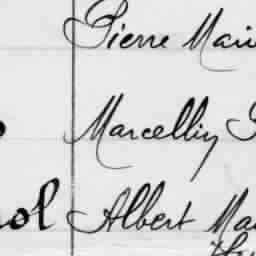 Pierre Mari
Marcellin
ol Albert Ma